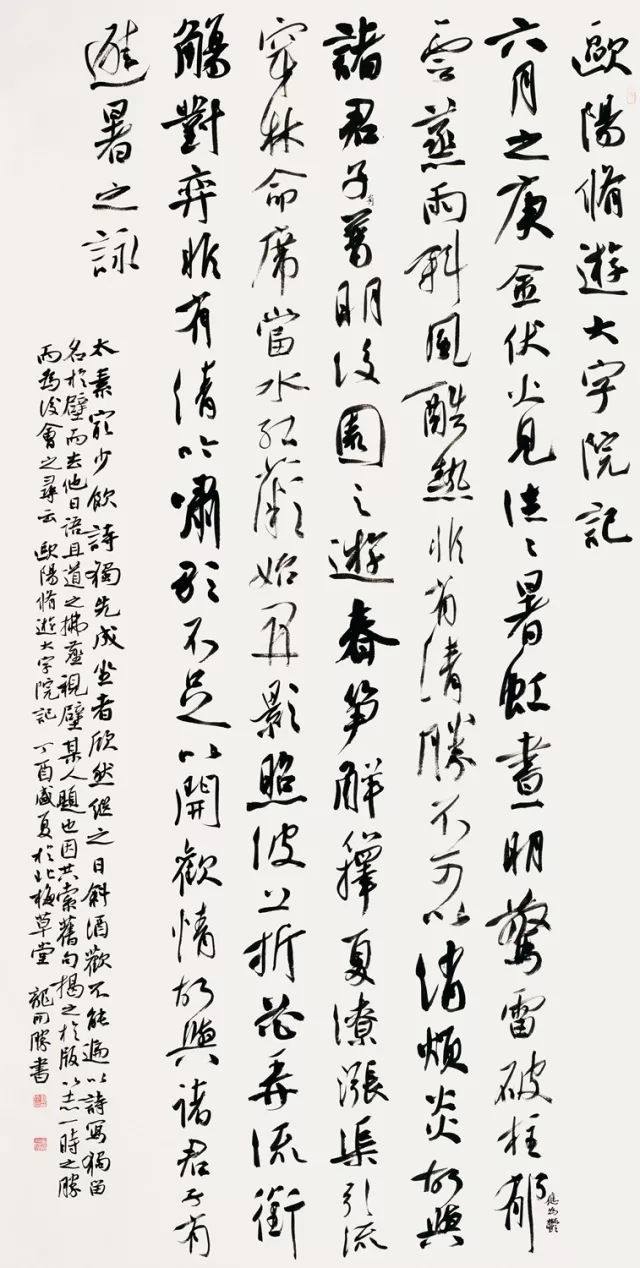 歐陽脩遊大字院記
六月之庚金伏火見往々暑虹晝明驚雷破柱郁
雲蒸雨斜風酷熱非有清勝不可以消煩炎故與
諸君子有普明後園之遊春笋解籜夏潦漲渠引流
穿林命席當水紅薇始開影照波上折花弄流銜
觴對弈非有清吟嘯歌不足以開歡情故與諸君子有
避暑之詠
太素最少飲詩獨先成坐者欣然繼之日斜酒歡不能遍以詩寫獨留
名於壁而去他日語且道之拂塵視壁某人題也因共索舊句揭之於版以志一時之勝
而為後會之尋云 歐陽脩遊大字院記 丁酉盛夏於北梅草堂 龍開勝書